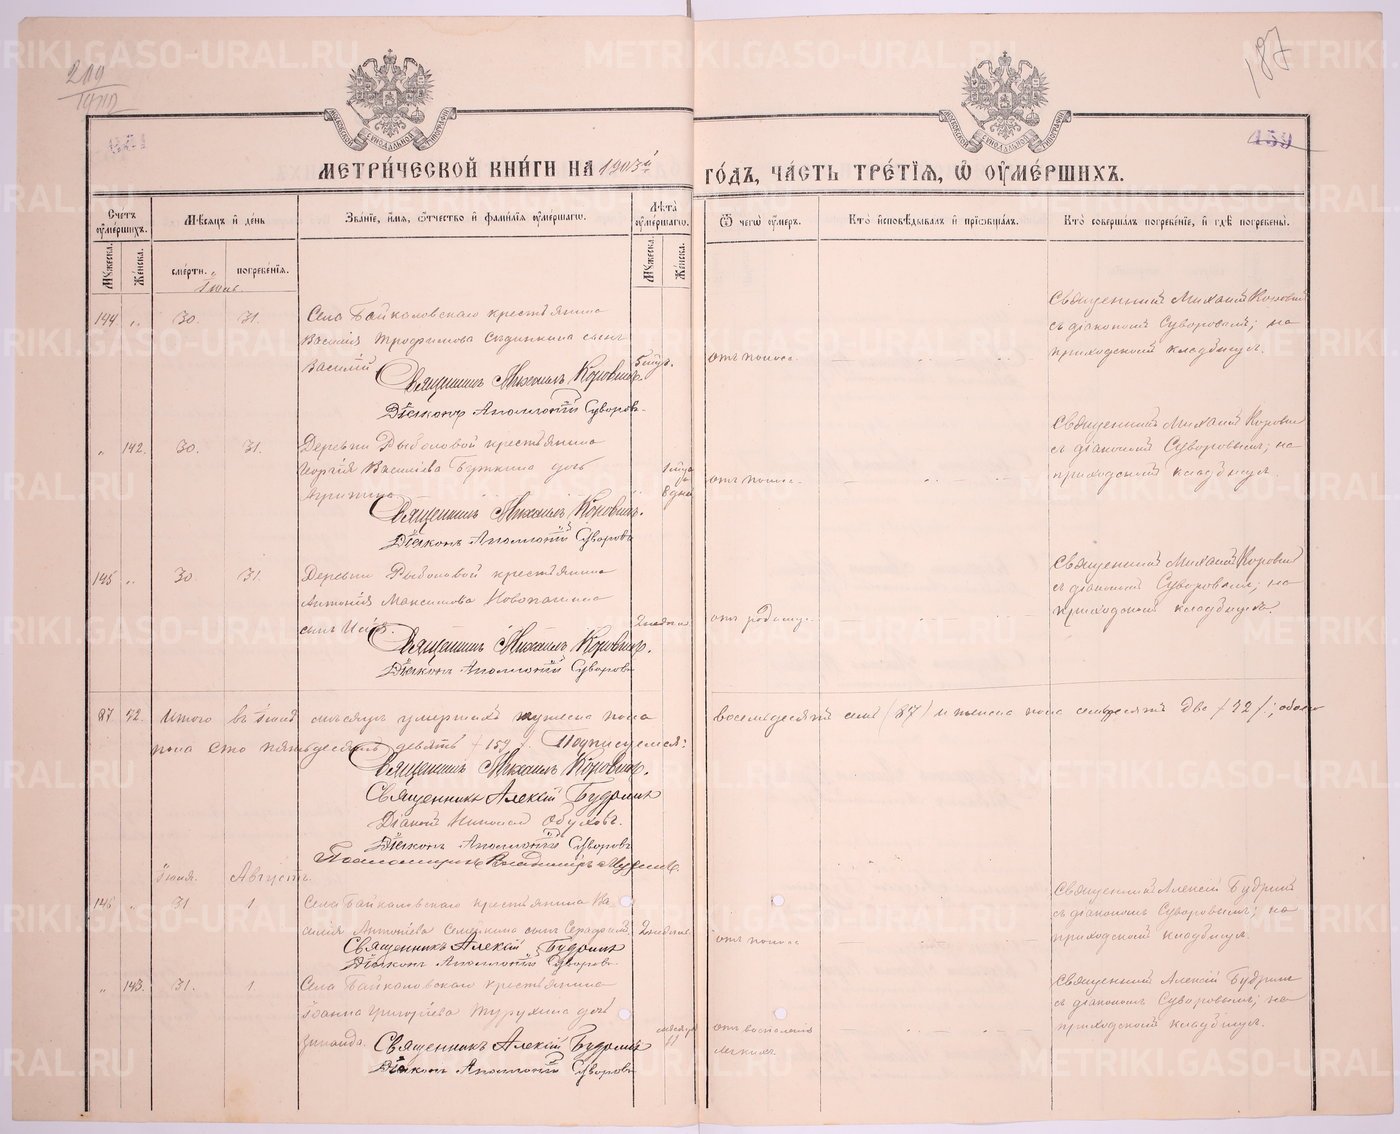 219
187
159
МЕТРИ́ЧЕСКОЙ КНИ́ГИ НА 1903й
ГО́ДЪ, ЧА́СТЬ ТРЕ́ТЇѦ, Ѡ҆ ОУ҆МЕ́РШИХЪ.
Сче́тъ оу҆ме́ршихъ.
Мѣ́сѧцъ и҆ де́нь
Зва́нїе, и҆́мѧ, ѻ҆́тчество и҆ фами́лїѧ оу҆ме́ршагѡ.
Лѣ́та оу҆ме́ршагѡ.
Ѿ чегѡ̀ оу҆́меръ.
Кто̀ и҆сповѣ́дывалъ и҆ прїѡбща́лъ.
Кто̀ соверша́лъ погребе́нїе, и҆ гдѣ̀ погребены̀.
Мꙋ́жеска.
Же́нска.
сме́рти.
погребе́нїѧ.
Мꙋ́жеска.
Же́нска.
Іюль.
144 " 30. 31. Села Байкаловскаго крестьянина
Василія Трофимова сынъ
Василій
Священникъ Михаилъ Коровинъ.
Діаконъ Аполлоній Суворовъ.
отъ поноса.
Священникъ Михаилъ Коровинъ
съ діакономъ Суворовымъ; на
приходскомъ кладбищѣ.
" 142. 30. 31. Деревни Рыболовой крестьянина
Георгія Василіева Буткина дочь
Агриппина
8 дня
Священникъ Михаилъ Коровинъ.
Діаконъ Аполлоній Суворовъ
отъ поноса.
Священникъ Михаилъ Коровинъ
съ діакономъ Суворовымъ; на
приходскомъ кладбищѣ.
145 " 30 31. Деревни Рыболовой крестьянина
Антонія Максимова Новопашина
сынъ
2 недѣли.
Священникъ Михаилъ Коровинъ.
Діаконъ Аполлоній Суворовъ
отъ родимца.
Священникъ Михаилъ Коровинъ
съ діакономъ Суворовымъ; на
приходскомъ кладбищѣ.
87 72. Итого въ Іюлѣ мѣсяцѣ умершихъ мужеска пола
восемьдесятъ семь (87) и женска пола семьдесятъ два (72); обоего
пола сто пятьдесятъ девять (159). Подписуемся:
Священникъ Михаилъ Коровинъ.
Священникъ Алексій Будринъ
Діаконъ Николай Обуховъ.
Діаконъ Аполлоній Суворовъ
Псаломщикъ Владиміръ
Іюля. Августъ.
146 " 31 1 Села Байкаловскаго крестьянина Ва-
силія Антоніева сынъ Серафимъ
2 недѣли.
Священникъ Алексій Будринъ
Діаконъ Аполлоній Суворовъ
отъ поноса
Священникъ Алексій Будринъ
съ діакономъ Суворовымъ; на
приходскомъ кладбищѣ.
" 143. 31. 1 Села Байкаловскаго крестьянина
Іоанна Григоріева Турухина дочь
Зинаида.
мѣсяцъ
11
Священникъ Алексій Будринъ
Діаконъ Аполлоній Суворовъ
отъ воспаленія
легкихъ.
Священникъ Алексій Будринъ
съ діакономъ Суворовымъ; на
приходскомъ кладбищѣ.
METRIKI.GASO-URAL.RU